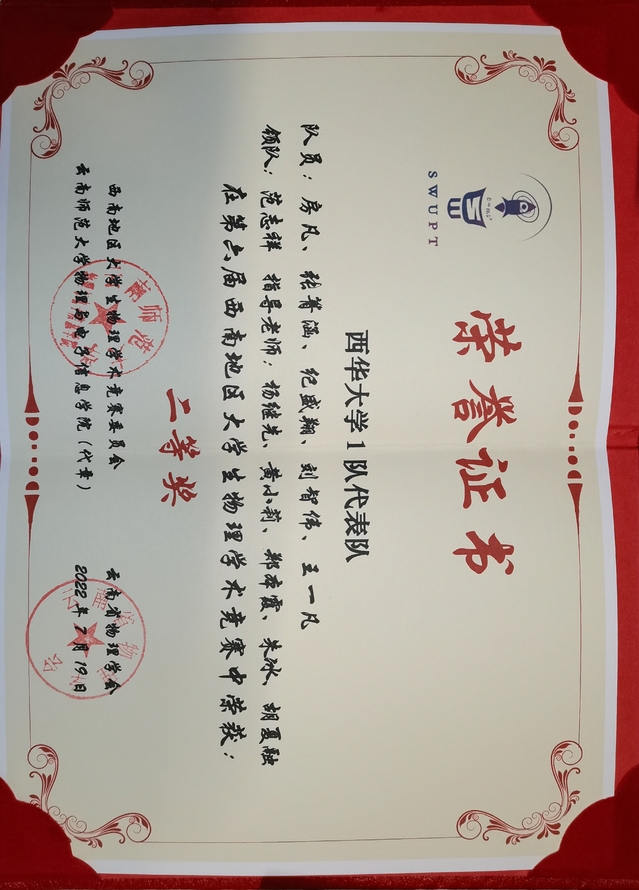 SWUPT
荣誉证书
西华大学1队代表队
队员：房凡、张箐涵、纪盛翔、刘智伟、王一凡
领队：范志祥 指导老师：杨继先、黄小莉、郑存霞、朱冰、胡夏融
在第六届西南地区大学生物理学术竞赛中荣获：
二等奖
西南地区大学生物理学术竞赛委员会
云南省物理学会
云南师范大学物理与电子信息学院（代章）
2022年7月19日